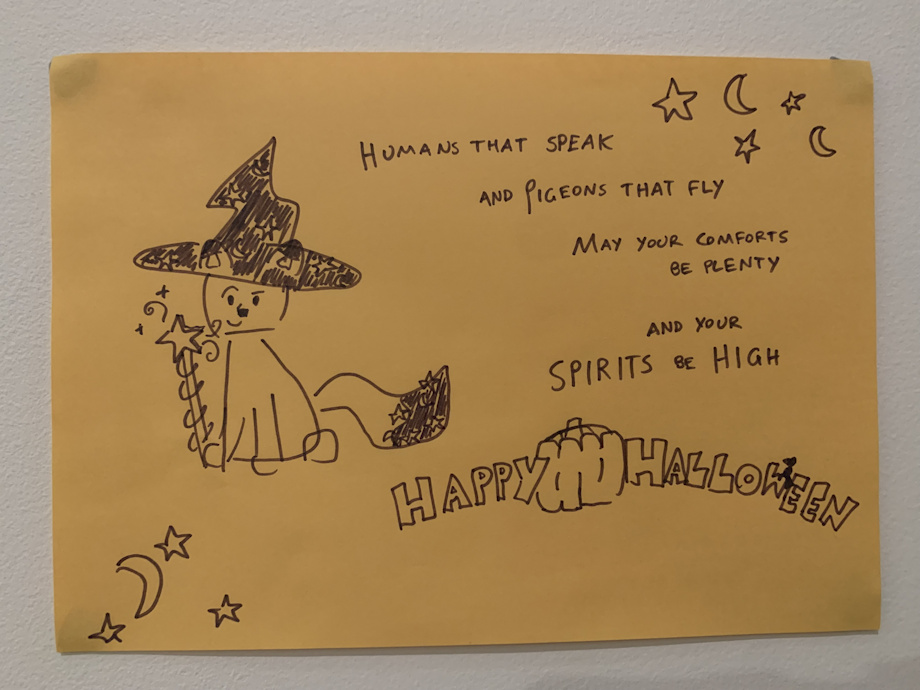 HUMANS THAT SPEAK
AND PIGEONS THAT FLY
MAY YOUR COMFORTS
BE PLENTY
AND YOUR
SPIRITS BE HIGH
HAPPY HALLOWEEN